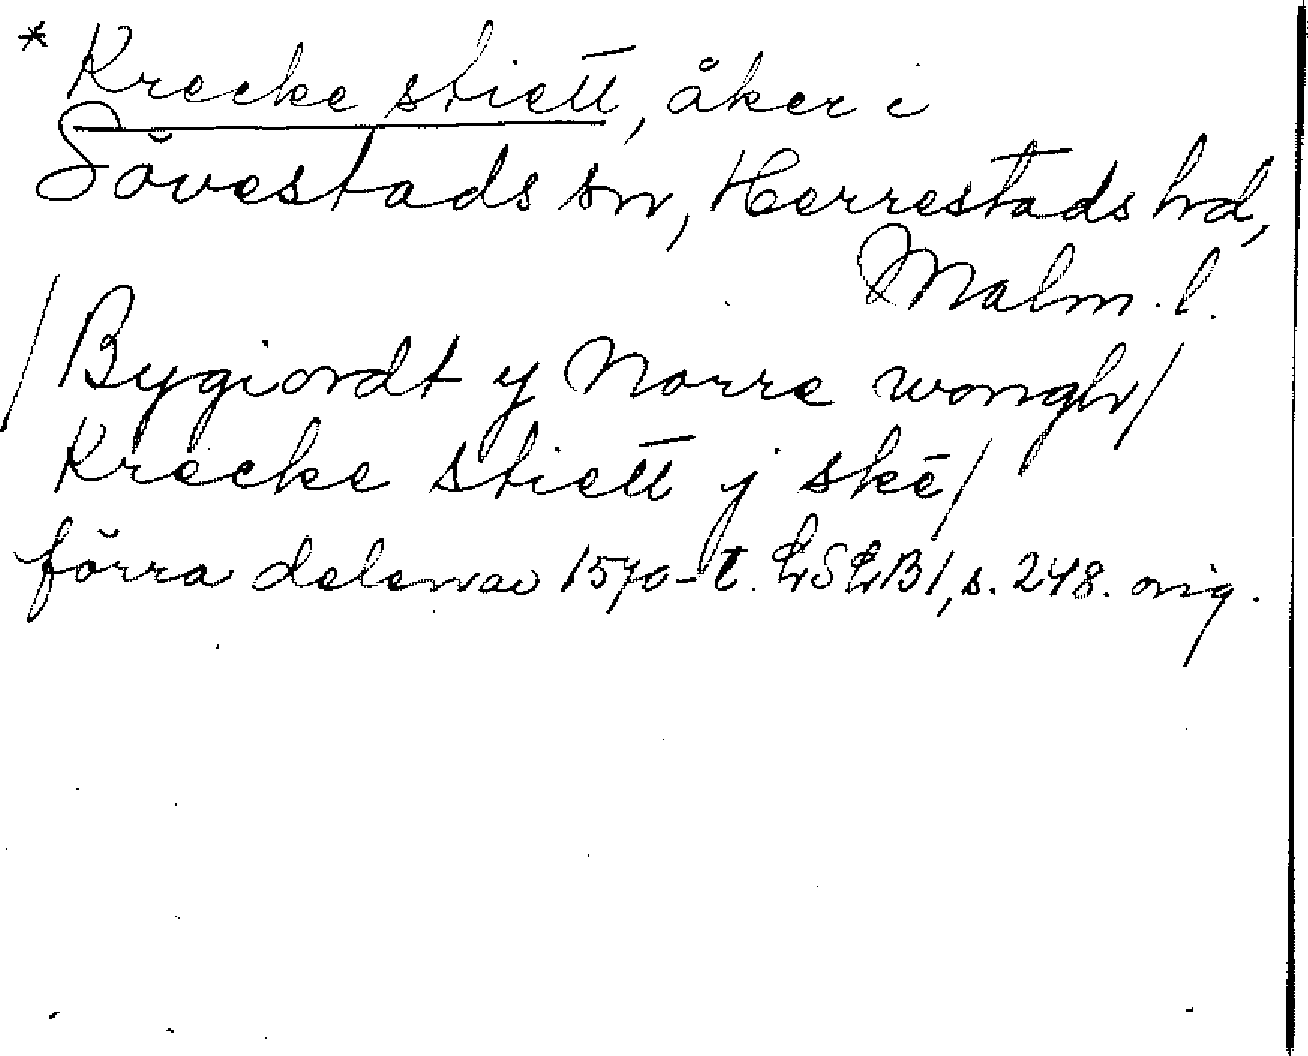 * Krecke stiett, åker i
Sövestads sn, Herrestads hd,
Malm. l.
/Bygiordt y Norre wongh/
Krecke stiett j skē/
förra delen av 1570-t. LSLB1, s. 248. orig.